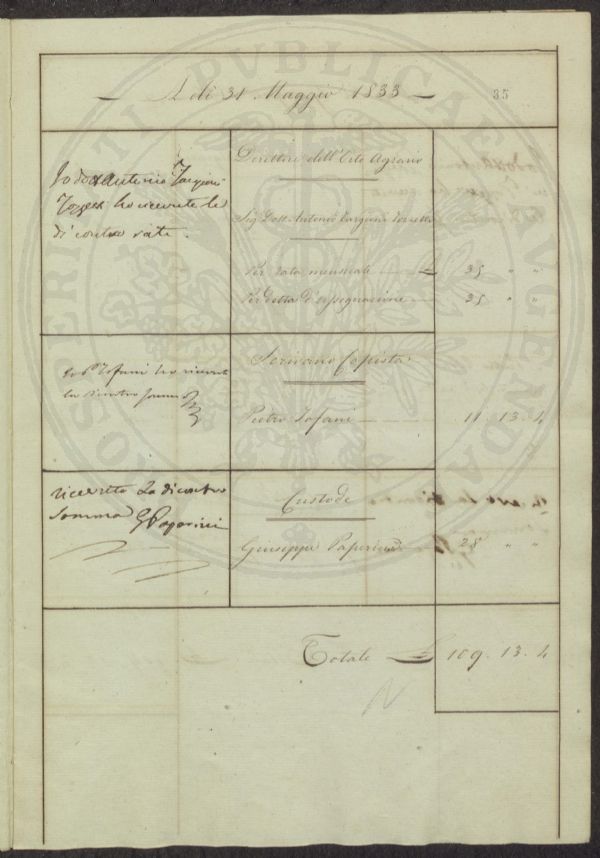 A dì 31 Maggio 1833
35
Io dott Antonio Targioni
Tozzetti ho ricevute le
di contro rate.
Direttore dell'Orto Agrario
Sig. Dott. Antonio Targioni Tozzetti
Per rata mensuale £ 35 " "
Per detta d'assegnazione 35 " "
Io P Tofani ho ricevuto
la dicontro somma
Scrivano Copista
Pietro Tofani 11. 13. 4
ricevuto La dicontro
Somma G Paperini
Custode
Giuseppe Paperini 28 " "
Totale £ 109. 13. 4
PROSPERITATI PVBLICAE AVGENDAE